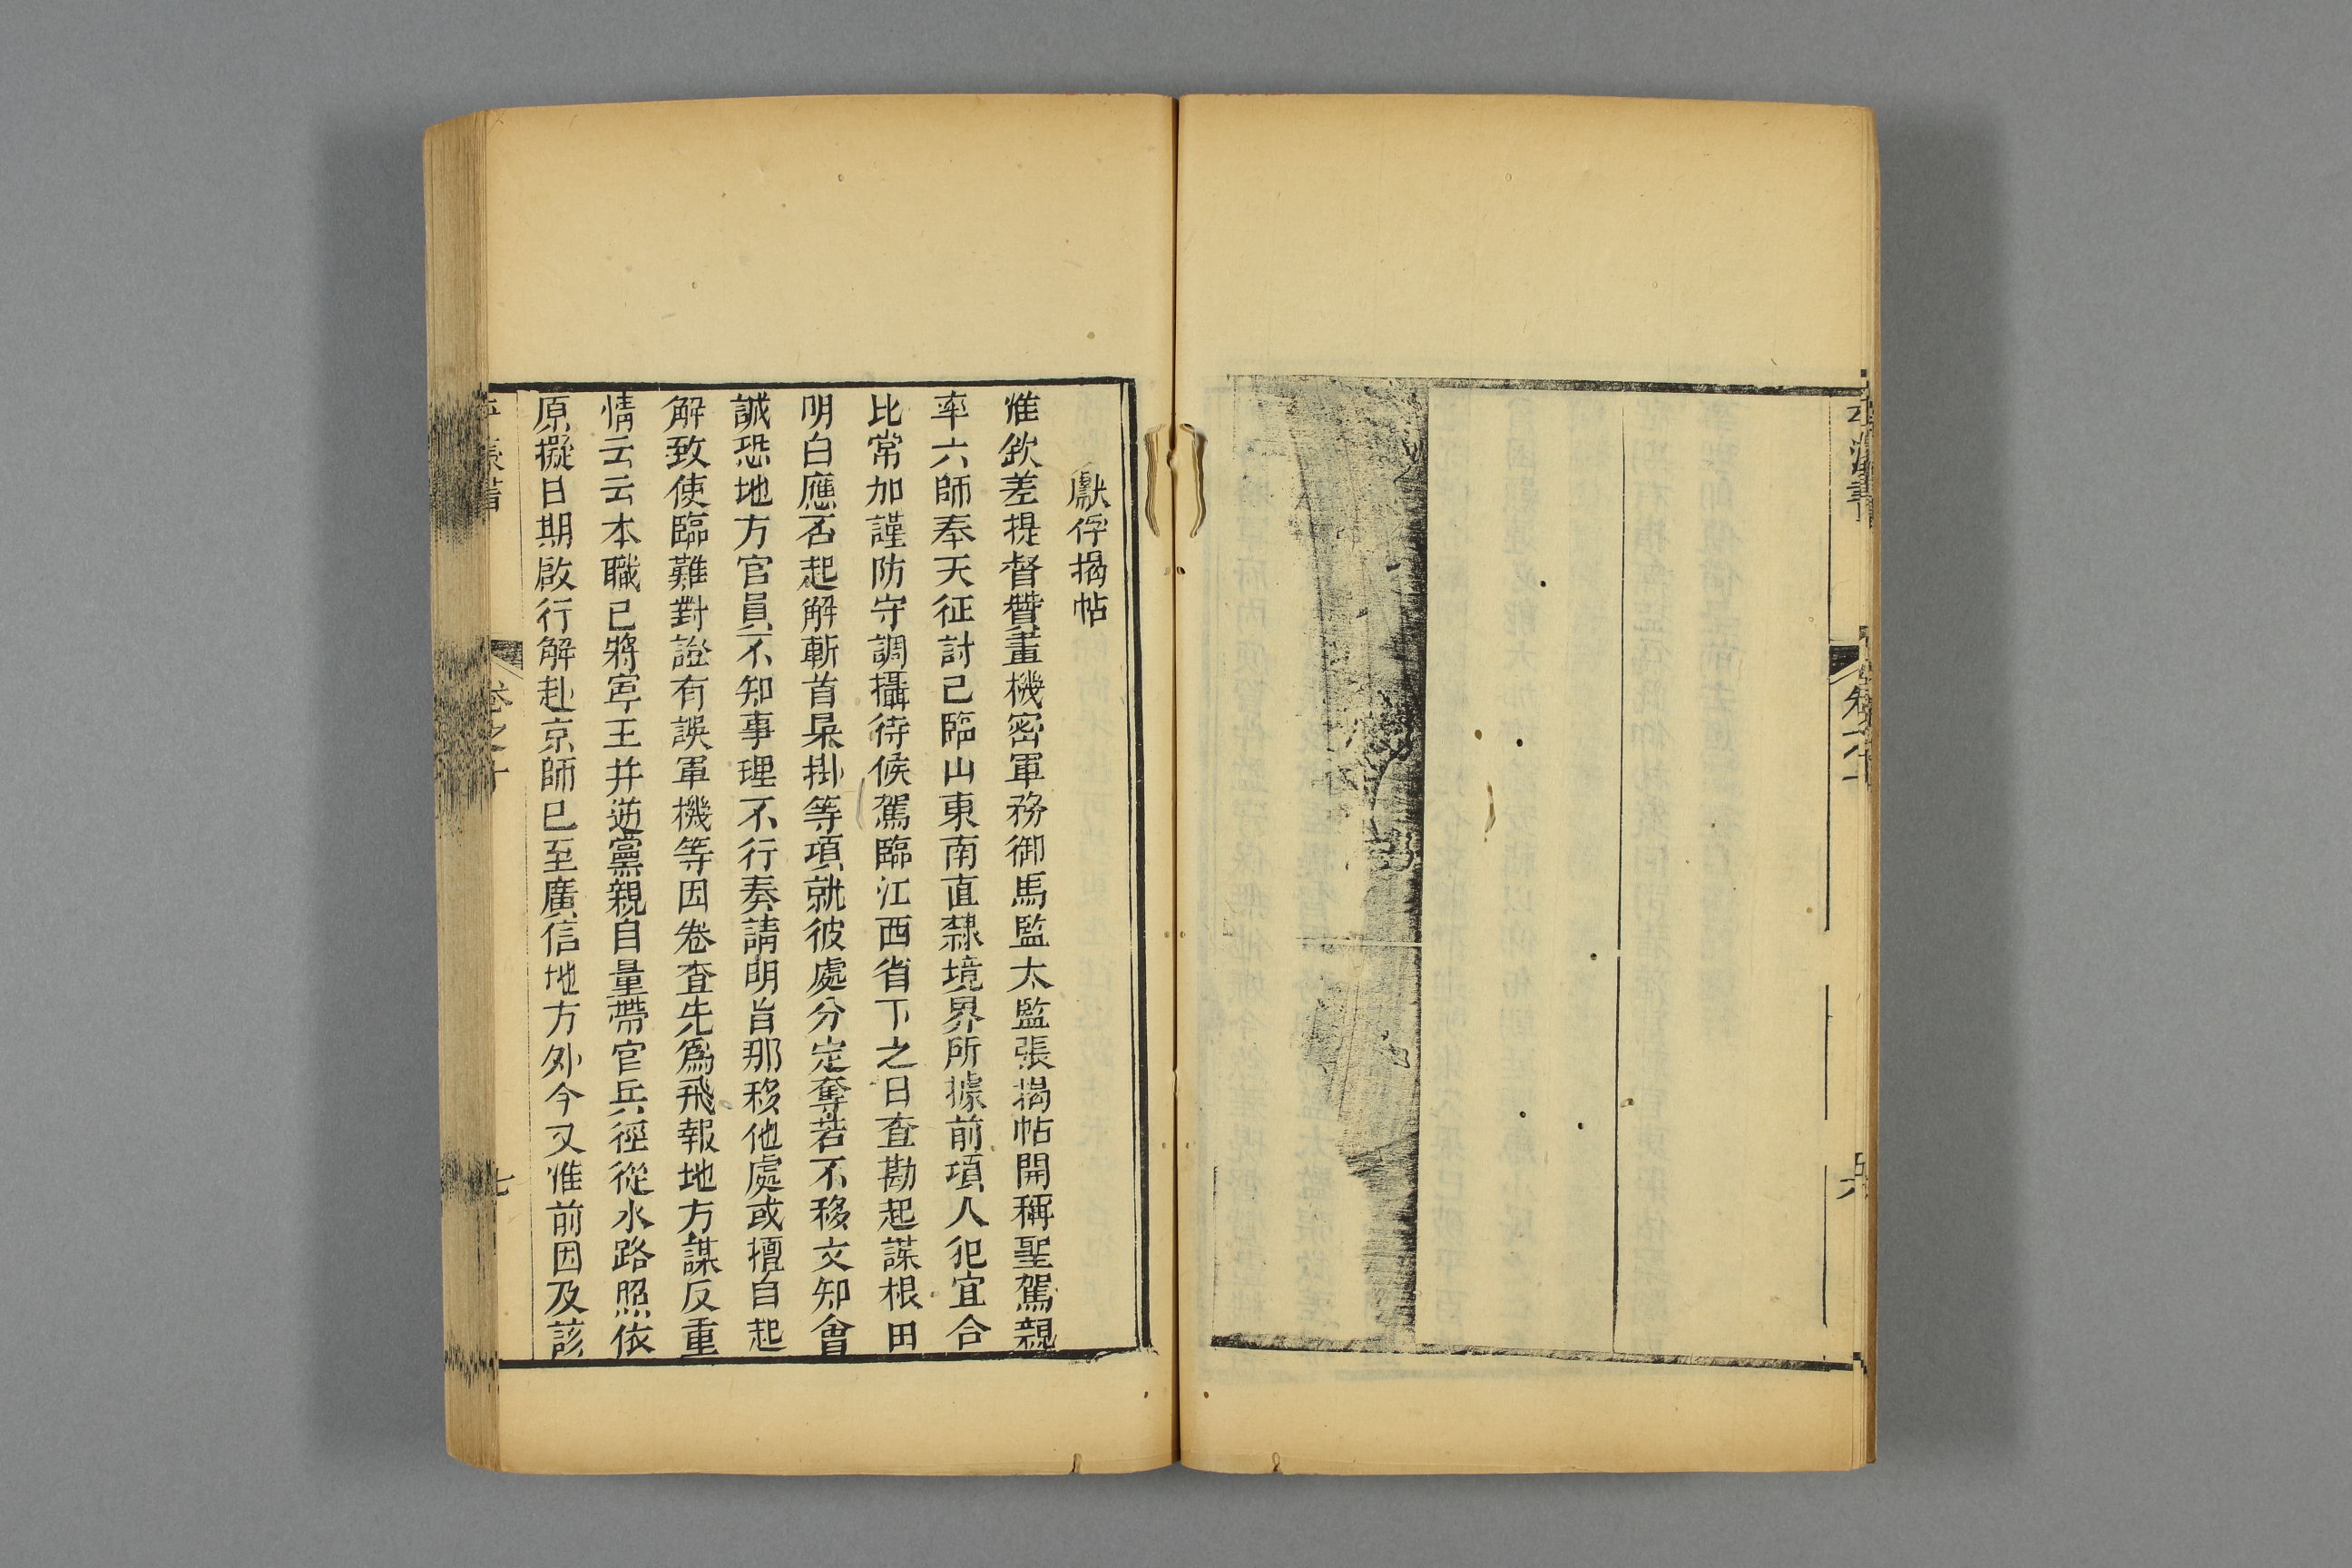 獻俘揭帖
准欽差提督贊畫機密軍務御馬監太監張揭帖開稱聖駕親
率六師奉天征討已臨山東南直隸境界所據前項人犯宜合
比常加謹防守調攝待候駕臨江西省下之日查勘起謀根由
明白應否起解斬首梟掛等項就彼處分定奪若不移文知會
誠恐地方官員不知事理不行奏請明旨那移他處或擅自起
解致使臨難對證有誤軍機等因卷查先爲飛報地方謀反重
情云云本職已將寧王并逆黨親自量帶官兵徑從水路照依
原擬日期啟行解赴京師已至廣信地方外今又准前因及該
卷之十
七